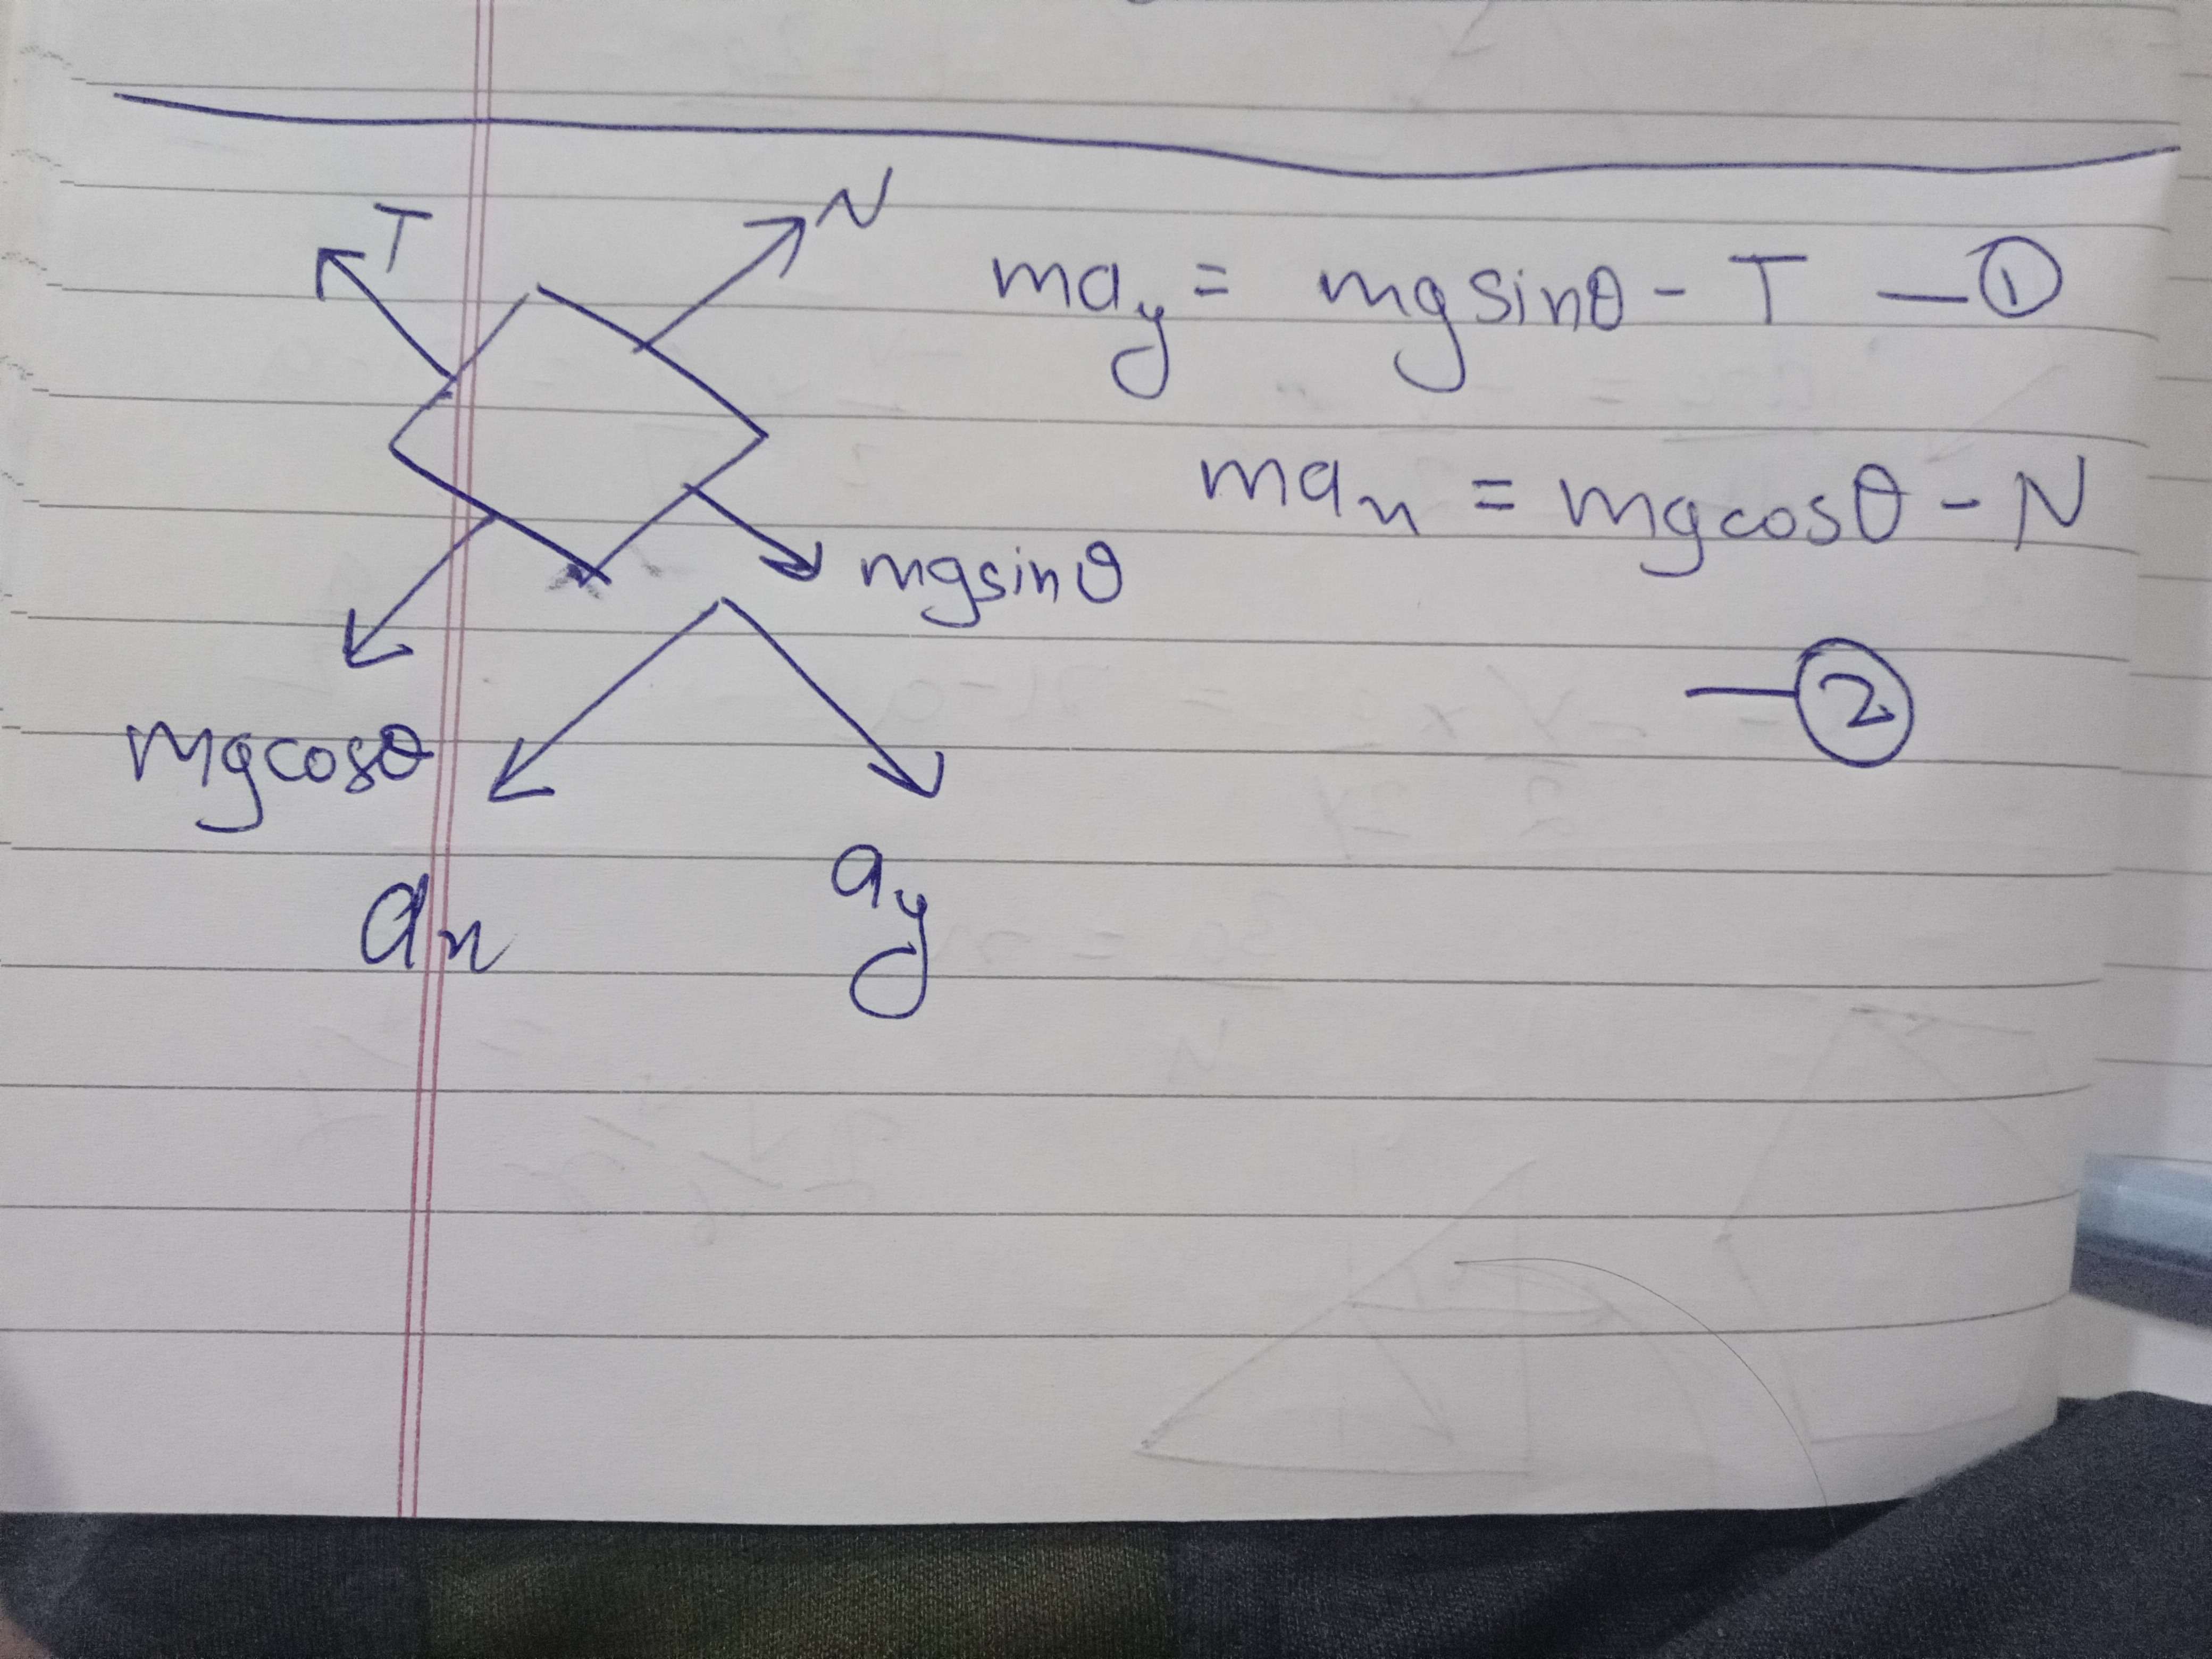 T
N
ma_y = mg sinθ - T — ①
ma_x = mg cosθ - N
— ②
mg sinθ
mg cosθ
a_x
a_y